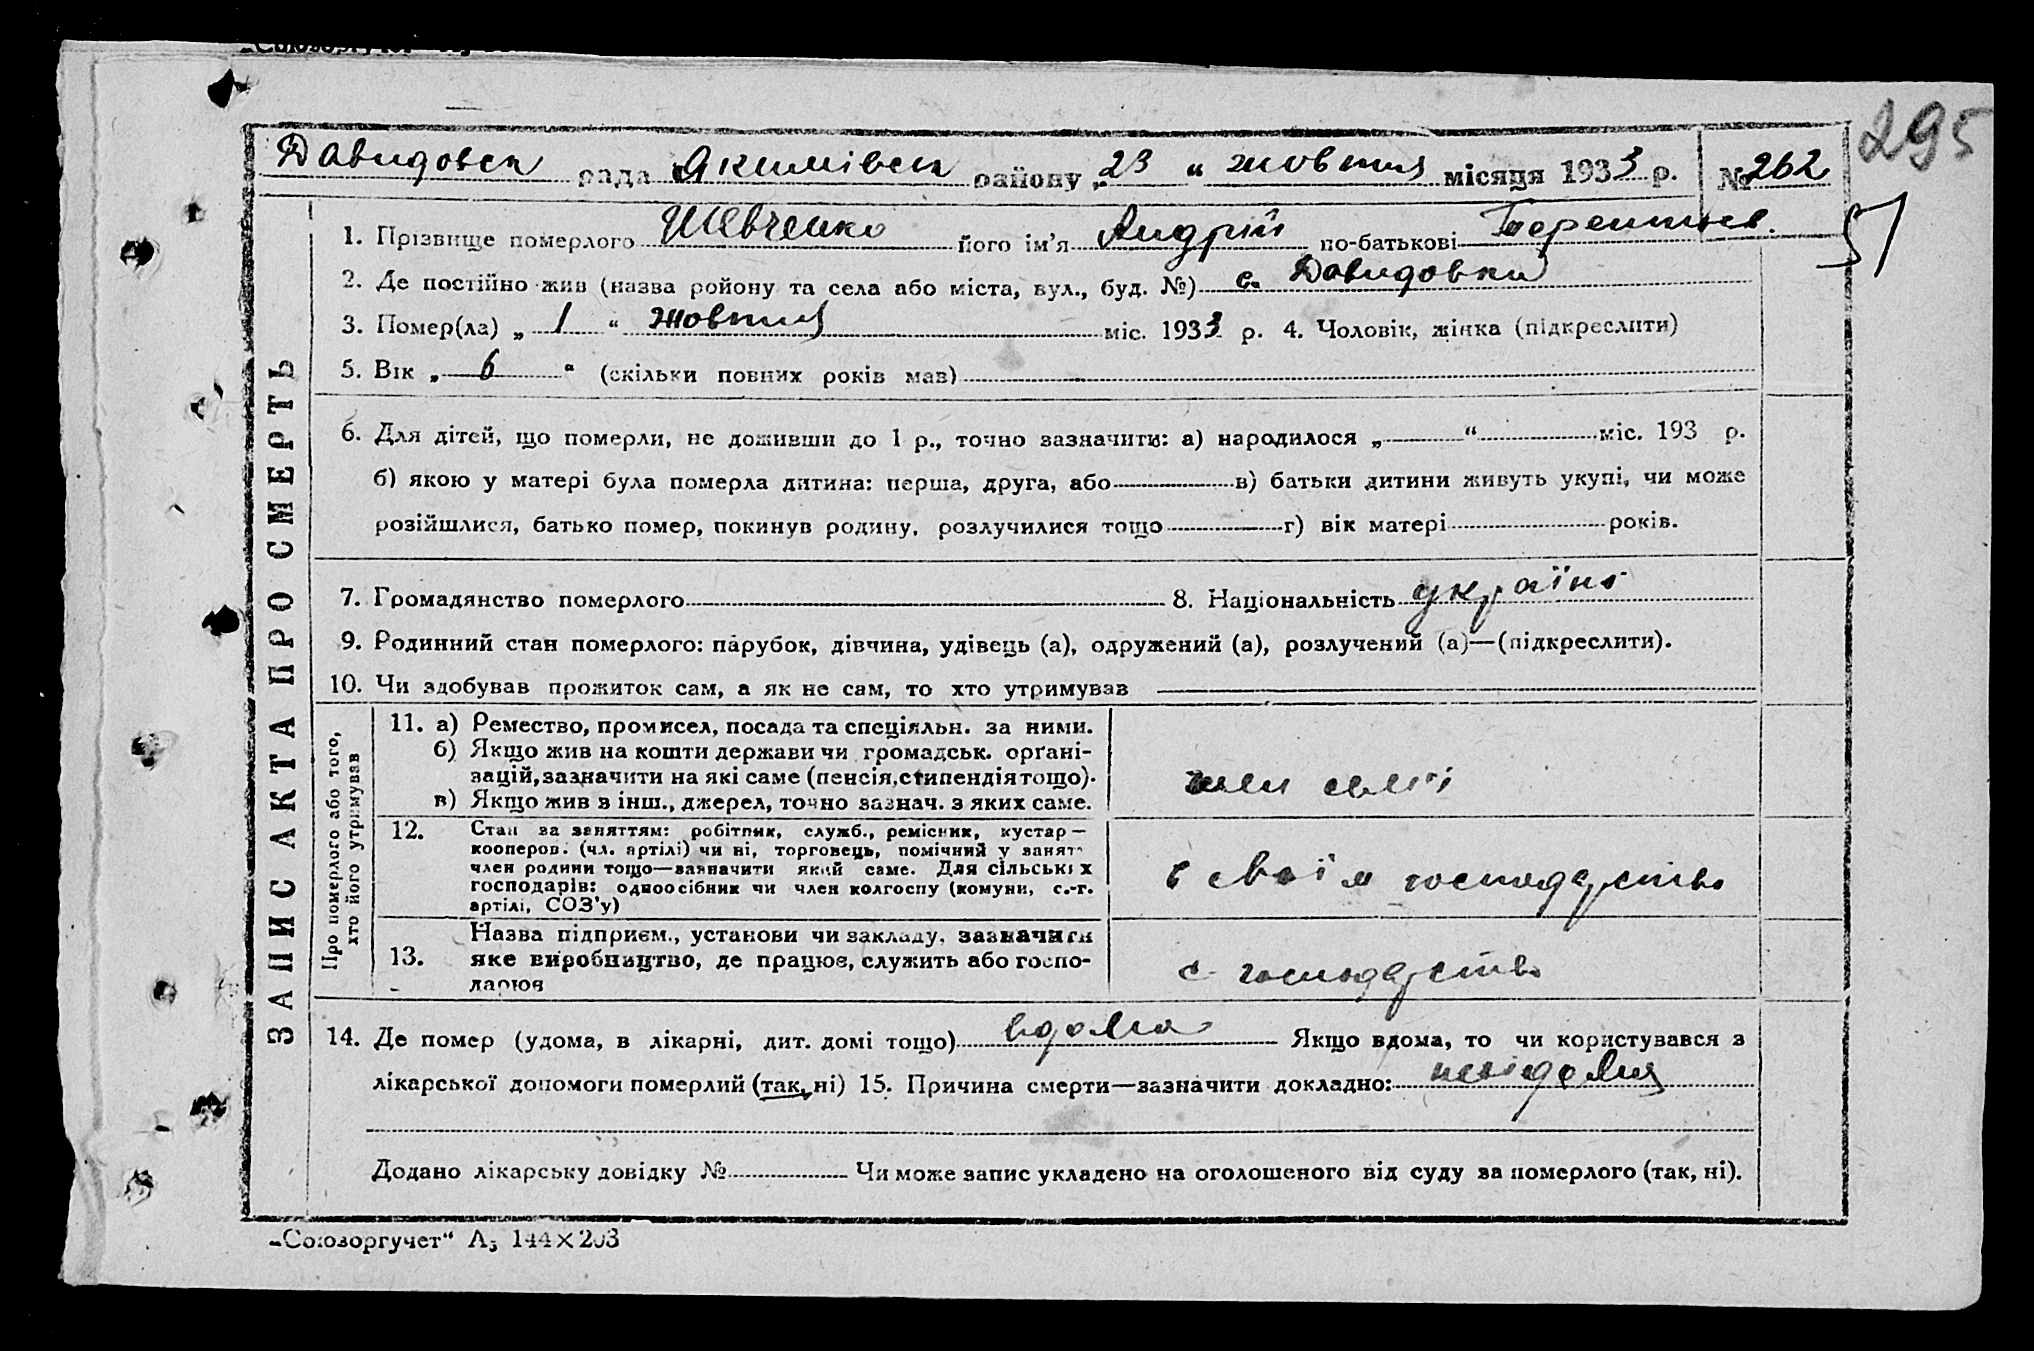 295
Давидовск рада Якимівск району „ 23 “ жовтня місяця 1933 р. № 262
51
1. Прізвище померлого Шевченко його ім'я Андрій по-батькові Терентьев.
2. Де постійно жив (назва ройону та села або міста, вул., буд. №) с. Давидовка
3. Помер(ла) „ 1 “ жовтня міс. 1933 р. 4. Чоловік, жінка (підкреслити)
5. Вік „ 6 “ (скільки повних років мав)
6. Для дітей, що померли, не доживши до 1 р., точно зазначити: а) народилося „ “ міс. 193 р.
б) якою у матері була померла дитина: перша, друга, або в) батьки дитини живуть укупі, чи може
розійшлися, батько помер, покинув родину, розлучилися тощо г) вік матері років.
7. Громадянство померлого 8. Національність україн
9. Родинний стан померлого: парубок, дівчина, удівець (а), одружений (а), розлучений (а)—(підкреслити).
10. Чи здобував прожиток сам, а як не сам, то хто утримував
ЗАПИС АКТА ПРО СМЕРТЬ
Про померлого або того,
хто його утримував
11. а) Ремество, промисел, посада та спеціяльн. за ними.
б) Якщо жив на кошти держави чи громадськ. орґані-
зацій, зазначити на які саме (пенсія, стипендія тощо).
в) Якщо жив з інш., джерел, точно зазнач. з яких саме.
член сем'ї
12. Стан за заняттям: робітник, служб., ремісник, кустар—
кооперов. (чл. артілі) чи ні, торговець, помічний у занят
член родини тощо—зазначити який саме. Для сільських
господарів: одноосібник чи член колгоспу (комуни, с.-г.
артілі, СОЗ'у)
в своїм господарстві
13. Назва підприєм., установи чи закладу, зазначити
яке виробництво, де працює, служить або госпо-
дарює
с. господарство
14. Де помер (удома, в лікарні, дит. домі тощо) вдома Якщо вдома, то чи користувався з
лікарської допомоги померлий (так, ні) 15. Причина смерти—зазначити докладно: невідомия
Додано лікарську довідку № Чи може запис укладено на оголошеного від суду за померлого (так, ні).
„Союзоргучет“ А5 144×203